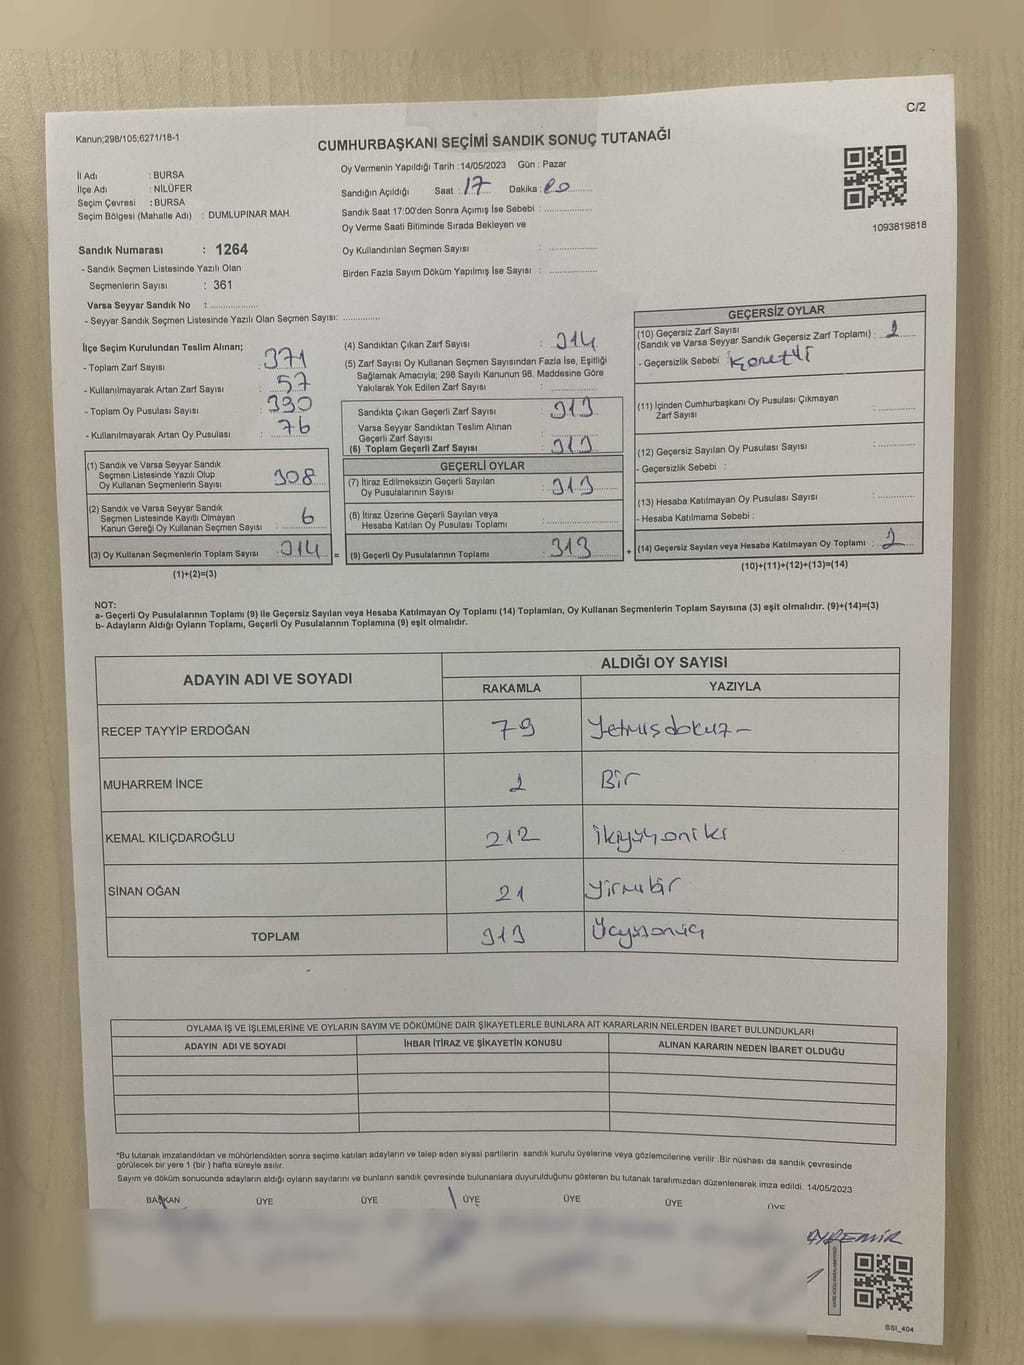 C/2
Kanun;298/105;6271/18-1
CUMHURBAŞKANI SEÇİMİ SANDIK SONUÇ TUTANAĞI
İl Adı : BURSA
İlçe Adı : NİLÜFER
Seçim Çevresi : BURSA
Seçim Bölgesi (Mahalle Adı) : DUMLUPINAR MAH.
Oy Vermenin Yapıldığı Tarih :14/05/2023 Gün : Pazar
Sandığın Açıldığı Saat : 17 Dakika :
Sandık Saat 17:00'den Sonra Açımış İse Sebebi : ................
Oy Verme Saati Bitiminde Sırada Bekleyen ve
Oy Kullandırılan Seçmen Sayısı : ................
Birden Fazla Sayım Döküm Yapılmış İse Sayısı : ................
1093819818
Sandık Numarası : 1264
- Sandık Seçmen Listesinde Yazılı Olan
Seçmenlerin Sayısı : 361
Varsa Seyyar Sandık No : ................
- Seyyar Sandık Seçmen Listesinde Yazılı Olan Seçmen Sayısı: ............
İlçe Seçim Kurulundan Teslim Alınan;
- Toplam Zarf Sayısı : 371
- Kullanılmayarak Artan Zarf Sayısı : 57
- Toplam Oy Pusulası Sayısı : 390
- Kullanılmayarak Artan Oy Pusulası : 76
(1) Sandık ve Varsa Seyyar Sandık
Seçmen Listesinde Yazılı Olup
Oy Kullanan Seçmenlerin Sayısı 308
(2) Sandık ve Varsa Seyyar Sandık
Seçmen Listesinde Kayıtlı Olmayan
Kanun Gereği Oy Kullanan Seçmen Sayısı : 6
(3) Oy Kullanan Seçmenlerin Toplam Sayısı : 314 =
(1)+(2)=(3)
(4) Sandıktan Çıkan Zarf Sayısı : 314
(5) Zarf Sayısı Oy Kullanan Seçmen Sayısından Fazla İse, Eşitliği
Sağlamak Amacıyla; 298 Sayılı Kanunun 98. Maddesine Göre
Yakılarak Yok Edilen Zarf Sayısı : ................
Sandıkta Çıkan Geçerli Zarf Sayısı : 313
Varsa Seyyar Sandıktan Teslim Alınan
Geçerli Zarf Sayısı : ................
(6) Toplam Geçerli Zarf Sayısı : 313
GEÇERLİ OYLAR
(7) İtiraz Edilmeksizin Geçerli Sayılan
Oy Pusulalarının Sayısı : 313
(8) İtiraz Üzerine Geçerli Sayılan veya
Hesaba Katılan Oy Pusulası Toplamı : ................
(9) Geçerli Oy Pusulalarının Toplamı : 313 +
GEÇERSİZ OYLAR
(10) Geçersiz Zarf Sayısı
(Sandık ve Varsa Seyyar Sandık Geçersiz Zarf Toplamı) : 1
- Geçersizlik Sebebi :
(11) İçinden Cumhurbaşkanı Oy Pusulası Çıkmayan
Zarf Sayısı : ................
(12) Geçersiz Sayılan Oy Pusulası Sayısı : ................
- Geçersizlik Sebebi :
(13) Hesaba Katılmayan Oy Pusulası Sayısı : ................
- Hesaba Katılmama Sebebi :
(14) Geçersiz Sayılan veya Hesaba Katılmayan Oy Toplamı : 1
(10)+(11)+(12)+(13)=(14)
NOT:
a- Geçerli Oy Pusulalarının Toplamı (9) ile Geçersiz Sayılan veya Hesaba Katılmayan Oy Toplamı (14) Toplamları, Oy Kullanan Seçmenlerin Toplam Sayısına (3) eşit olmalıdır. (9)+(14)=(3)
b- Adayların Aldığı Oyların Toplamı, Geçerli Oy Pusulalarının Toplamına (9) eşit olmalıdır.
ADAYIN ADI VE SOYADI
ALDIĞI OY SAYISI
RAKAMLA YAZIYLA
RECEP TAYYİP ERDOĞAN 79 Yetmişdokuz
MUHARREM İNCE 1 Bir
KEMAL KILIÇDAROĞLU 212 İkiyüzoniki
SİNAN OĞAN 21 Yirmibir
TOPLAM 313 Üçyüzonüç
OYLAMA İŞ VE İŞLEMLERİNE VE OYLARIN SAYIM VE DÖKÜMÜNE DAİR ŞİKAYETLERLE BUNLARA AİT KARARLARIN NELERDEN İBARET BULUNDUKLARI
ADAYIN ADI VE SOYADI İHBAR İTİRAZ VE ŞİKAYETİN KONUSU ALINAN KARARIN NEDEN İBARET OLDUĞU
*Bu tutanak imzalandıktan ve mühürlendikten sonra seçime katılan adayların ve talep eden siyasi partilerin sandık kurulu üyelerine veya gözlemcilerine verilir .Bir nüshası da sandık çevresinde
görülecek bir yere 1 (bir ) hafta süreyle asılır.
Sayım ve döküm sonucunda adayların aldığı oyların sayılarını ve bunların sandık çevresinde bulunanlara duyurulduğunu gösteren bu tutanak tarafımızdan düzenlenerek imza edildi. 14/05/2023
BAŞKAN ÜYE ÜYE ÜYE ÜYE ÜYE ÜYE
SSI_404